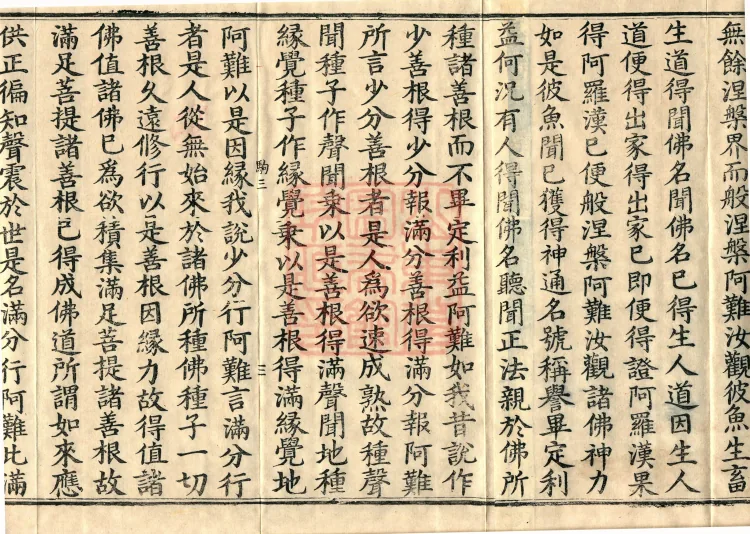 無餘涅槃界而般涅槃阿難汝觀彼魚生畜
生道得聞佛名聞佛名已得生人道因生人
道便得出家得出家已即便得證阿羅漢果
得阿羅漢已便般涅槃阿難汝觀諸佛神力
如是彼魚聞已獲得神通名號稱譽畢定利
益何況有人得聞佛名聽聞正法親於佛所
種諸善根而不畢定利益阿難如我昔說作
少善根得少分報滿分善根得滿分報阿難
所言少分善根者是人為欲速成熟故種聲
聞種子作聲聞乘以是善根得滿聲聞地種
緣覺種子作緣覺乘以是善根得滿緣覺地
三
阿難以是因緣我說少分行阿難言滿分行
者是人從無始來於諸佛所種佛種子一切
善根久遠修行以是善根因緣力故得值諸
佛值諸佛已為欲積集滿足菩提諸善根故
滿足菩提諸善根已得成佛道所謂如來應
供正徧知聲震於世是名滿分行阿難比滿